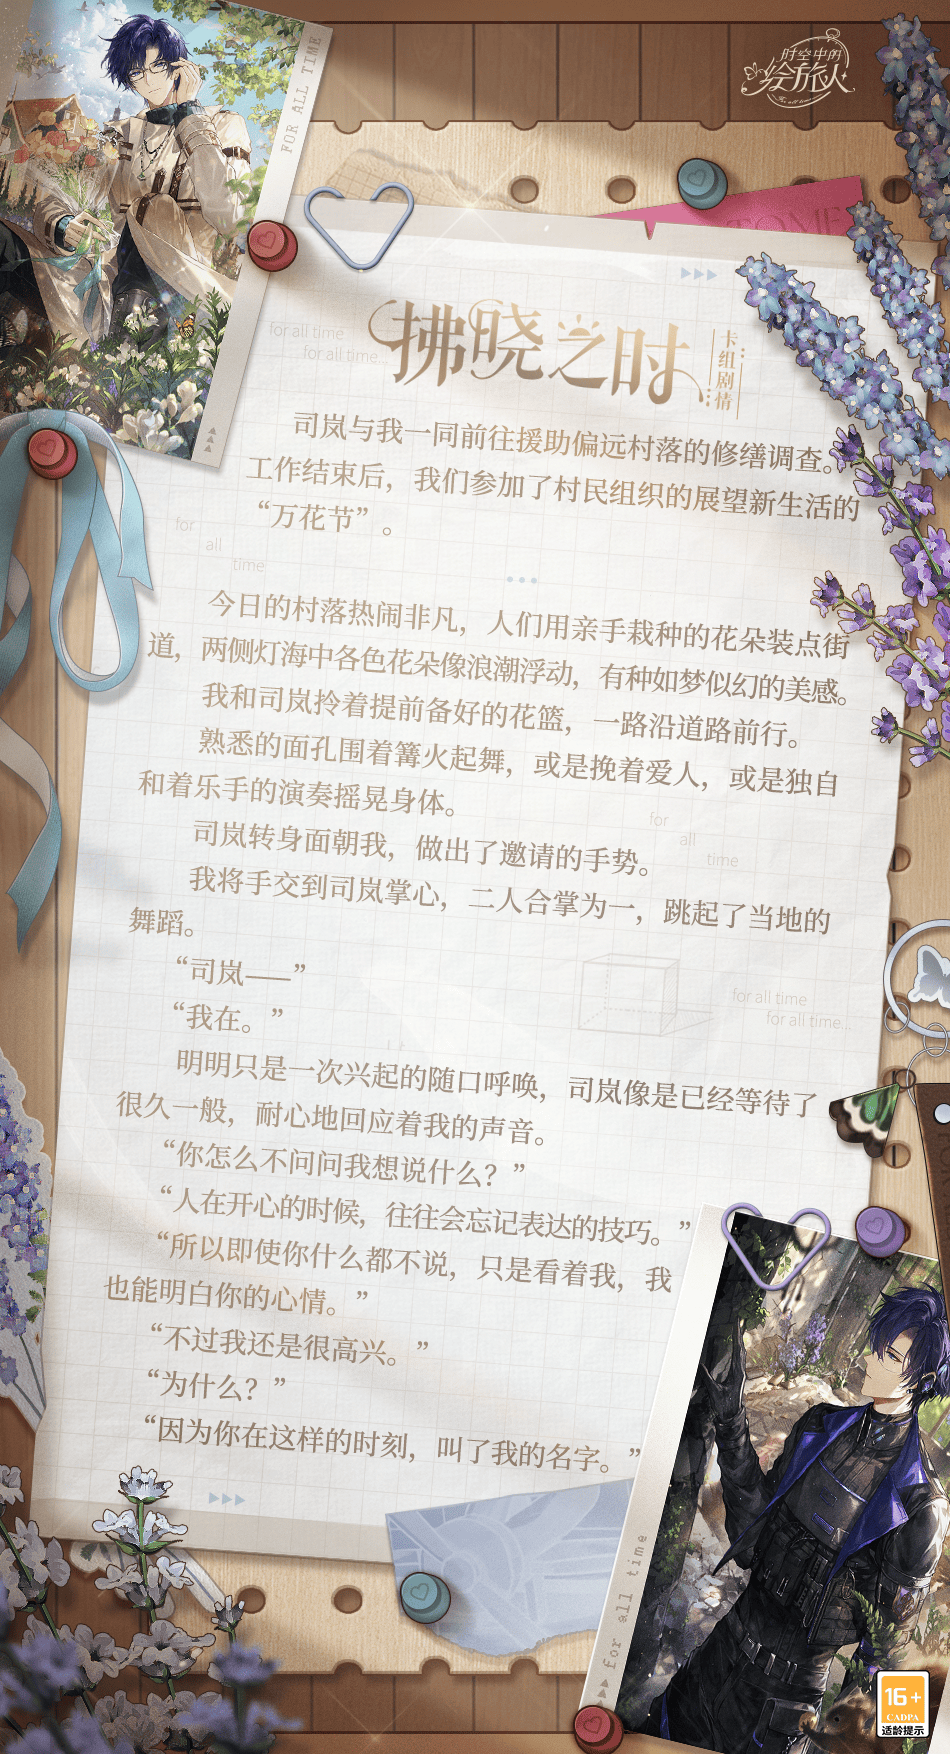 时空中的
绘旅人
For all time
FOR ALL TIME
TOME
拂晓之时
卡组剧情
for all time
for all time...
司岚与我一同前往援助偏远村落的修缮调查。
工作结束后，我们参加了村民组织的展望新生活的
“万花节”。
for
all
time
今日的村落热闹非凡，人们用亲手栽种的花朵装点街
道，两侧灯海中各色花朵像浪潮浮动，有种如梦似幻的美感。
我和司岚拎着提前备好的花篮，一路沿道路前行。
熟悉的面孔围着篝火起舞，或是挽着爱人，或是独自
和着乐手的演奏摇晃身体。
for
all
time
司岚转身面朝我，做出了邀请的手势。
我将手交到司岚掌心，二人合掌为一，跳起了当地的
舞蹈。
“司岚——”
“我在。”
for all time
for all time...
明明只是一次兴起的随口呼唤，司岚像是已经等待了
很久一般，耐心地回应着我的声音。
“你怎么不问问我想说什么？”
“人在开心的时候，往往会忘记表达的技巧。”
“所以即使你什么都不说，只是看着我，我
也能明白你的心情。”
“不过我还是很高兴。”
“为什么？”
“因为你在这样的时刻，叫了我的名字。”
for all time
16+
CADPA
适龄提示